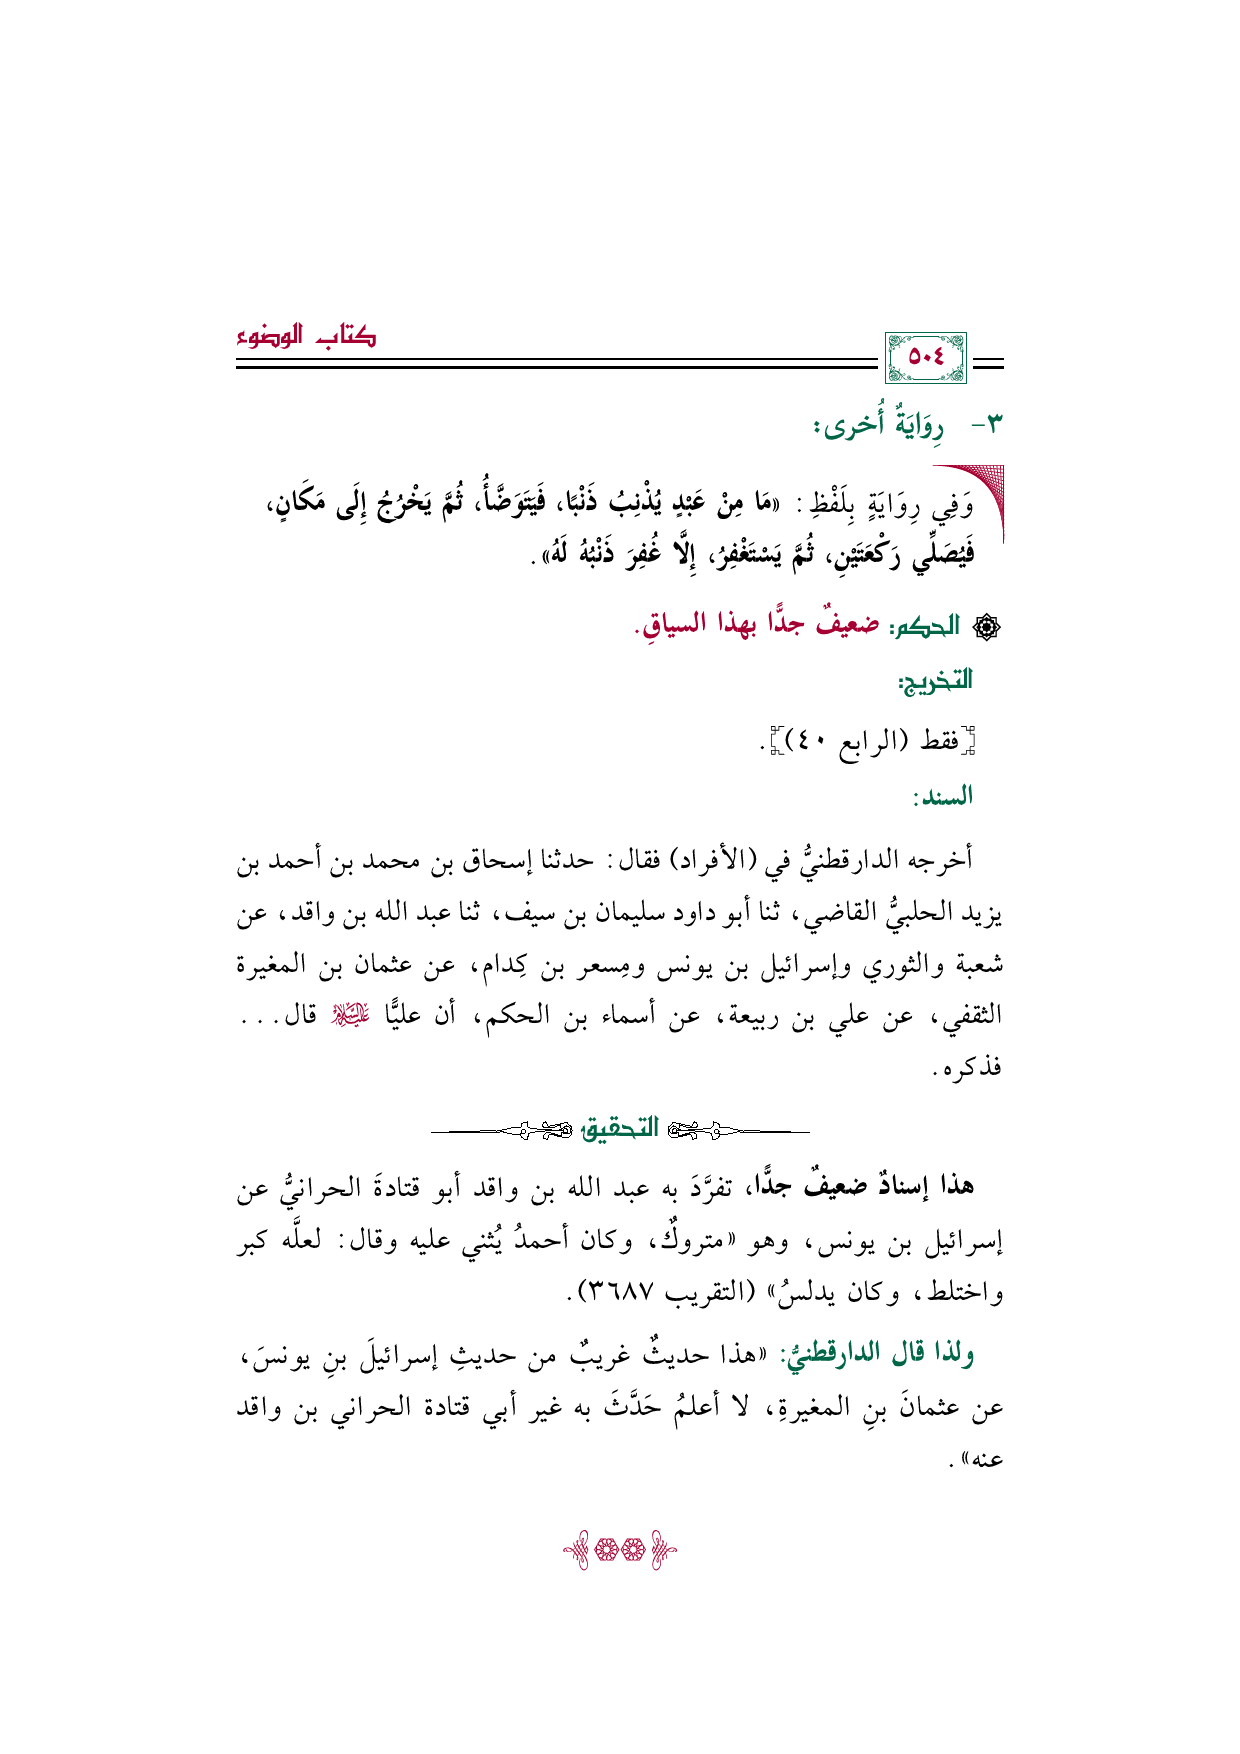 كتاب الوضوء
٥٠٤
٣- رِوَايَةٌ أُخرى:
وَفِي رِوَايَةٍ بِلَفْظِ: «مَا مِنْ عَبْدٍ يُذْنِبُ ذَنْبًا، فَيَتَوَضَّأُ، ثُمَّ يَخْرُجُ إِلَى مَكَانٍ،
فَيُصَلِّي رَكْعَتَيْنِ، ثُمَّ يَسْتَغْفِرُ، إِلَّا غُفِرَ ذَنْبُهُ لَهُ».
الحكم: ضعيفٌ جدًّا بهذا السياقِ.
التخريج:
[فقط (الرابع ٤٠)].
السند:
أخرجه الدارقطنيُّ في (الأفراد) فقال: حدثنا إسحاق بن محمد بن أحمد بن
يزيد الحلبيُّ القاضي، ثنا أبو داود سليمان بن سيف، ثنا عبد الله بن واقد، عن
شعبة والثوري وإسرائيل بن يونس ومِسعر بن كِدام، عن عثمان بن المغيرة
الثقفي، عن علي بن ربيعة، عن أسماء بن الحكم، أن عليًّا عليه السلام قال...
فذكره.
التحقيق
هذا إسنادٌ ضعيفٌ جدًّا، تفرَّدَ به عبد الله بن واقد أبو قتادةَ الحرانيُّ عن
إسرائيل بن يونس، وهو «متروكٌ، وكان أحمدُ يُثني عليه وقال: لعلَّه كبر
واختلط، وكان يدلسُ» (التقريب ٣٦٨٧).
ولذا قال الدارقطنيُّ: «هذا حديثٌ غريبٌ من حديثِ إسرائيلَ بنِ يونسَ،
عن عثمانَ بنِ المغيرةِ، لا أعلمُ حَدَّثَ به غير أبي قتادة الحراني بن واقد
عنه».